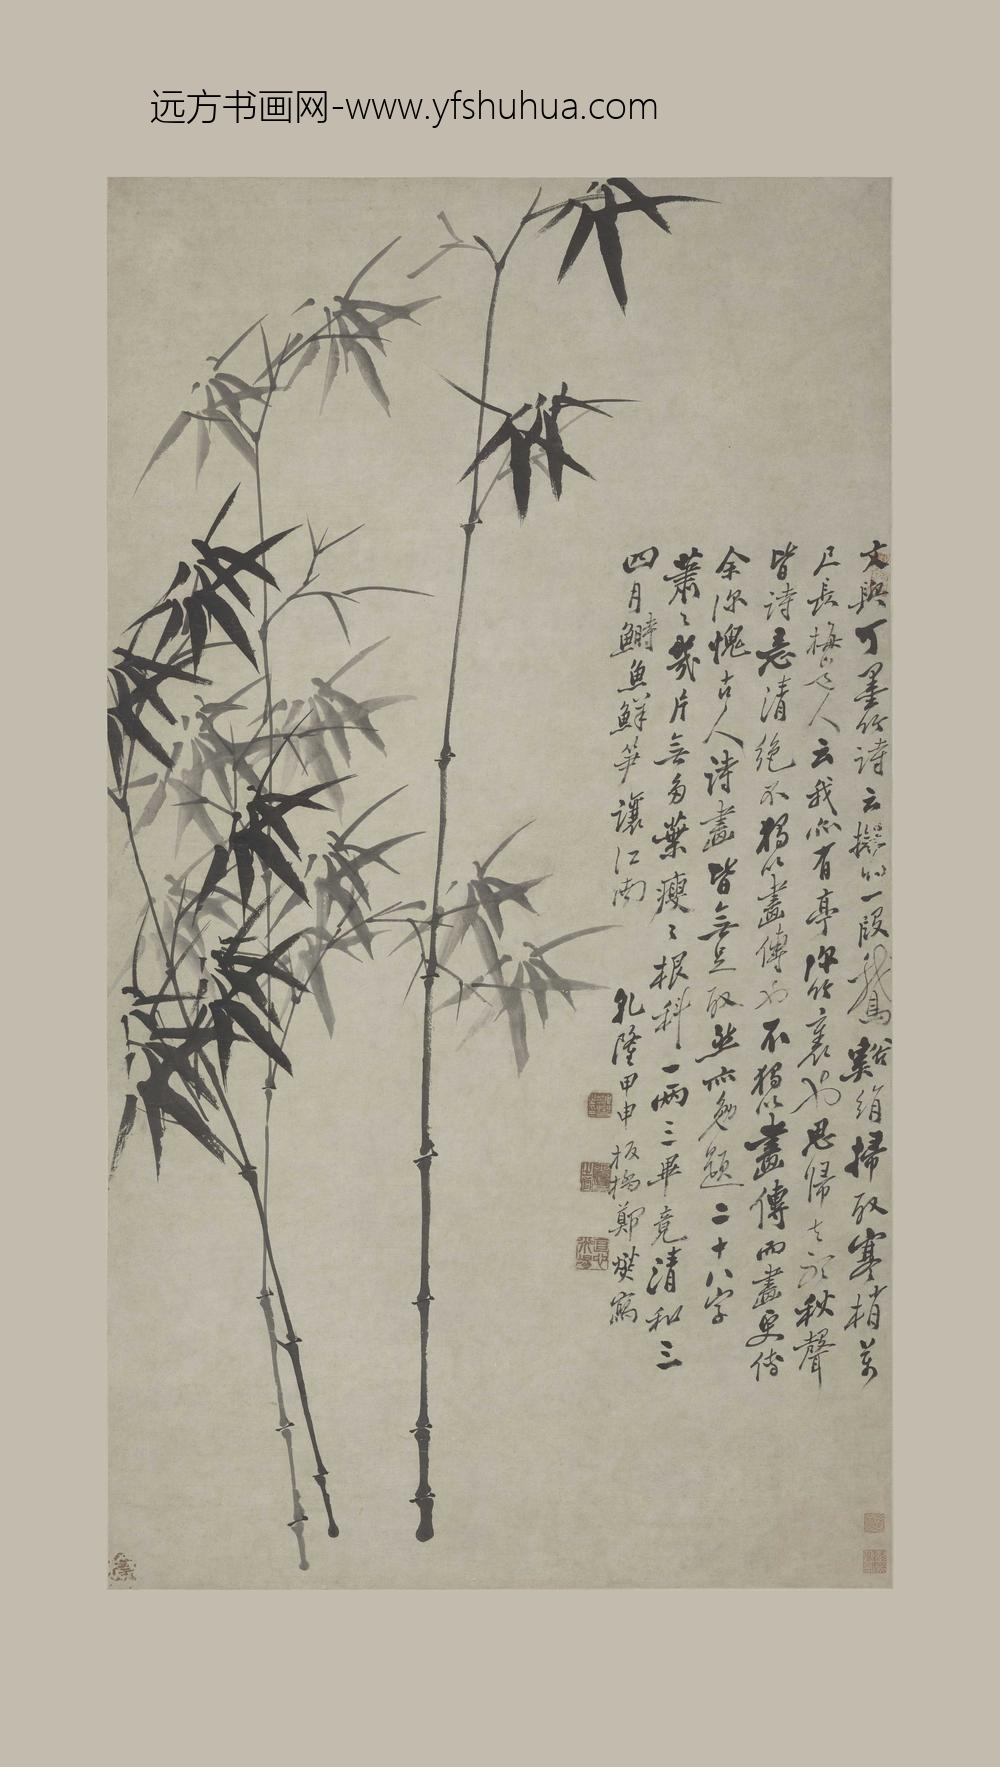 远方书画网-www.yfshuhua.com
文與可墨竹詩云擬將一段鵞谿絹掃取寒梢萬
尺長梅道人云我亦有亭深竹裏也思歸去聽秋聲
皆詩意清絶不獨以畫傳也不獨以畫傳而畫更傳
余深愧古人詩畫皆無足取然亦勉題二十八字
蕭〻幾片無多葉瘦〻根科一兩三畢竟清和三
四月鰣魚鮮笋讓江南
乾隆甲申板橋鄭燮寫